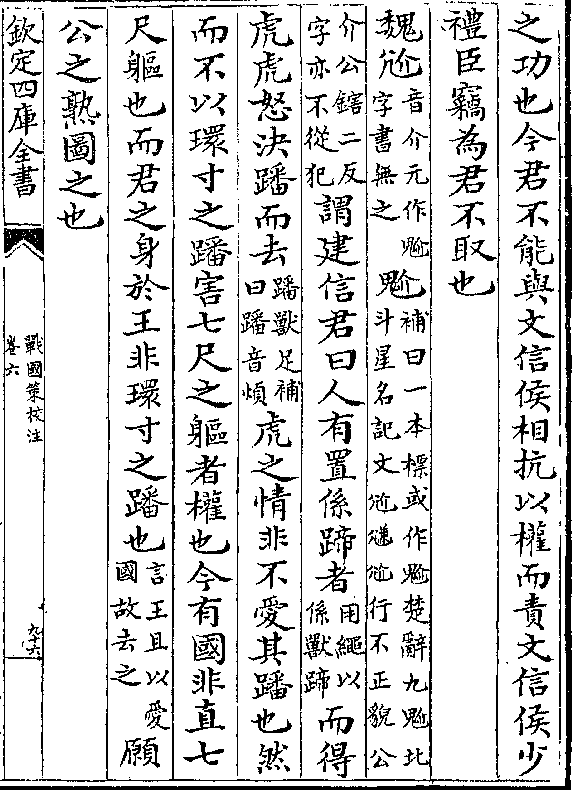 之功也今君不能與文信侯相抗以權而責文信侯少
禮臣竊為君不取也
魏尬音介元作魀字書無之魀補曰一本標或作魀楚辭九魀北斗星名記文尬尲尬行不正貌公
介公鎋二反字亦不從犯謂建信君曰人有置係蹄者用繩以係獸蹄而得
虎虎怒決蹯而去蹯獸足補曰蹯音煩虎之情非不愛其蹯也然
而不以環寸之蹯害七尺之軀者權也今有國非直七
尺軀也而君之身於王非環寸之蹯也言王且以愛國故去之願
公之熟圖之也
欽定四庫全書
戰國策校注
卷六
九十六